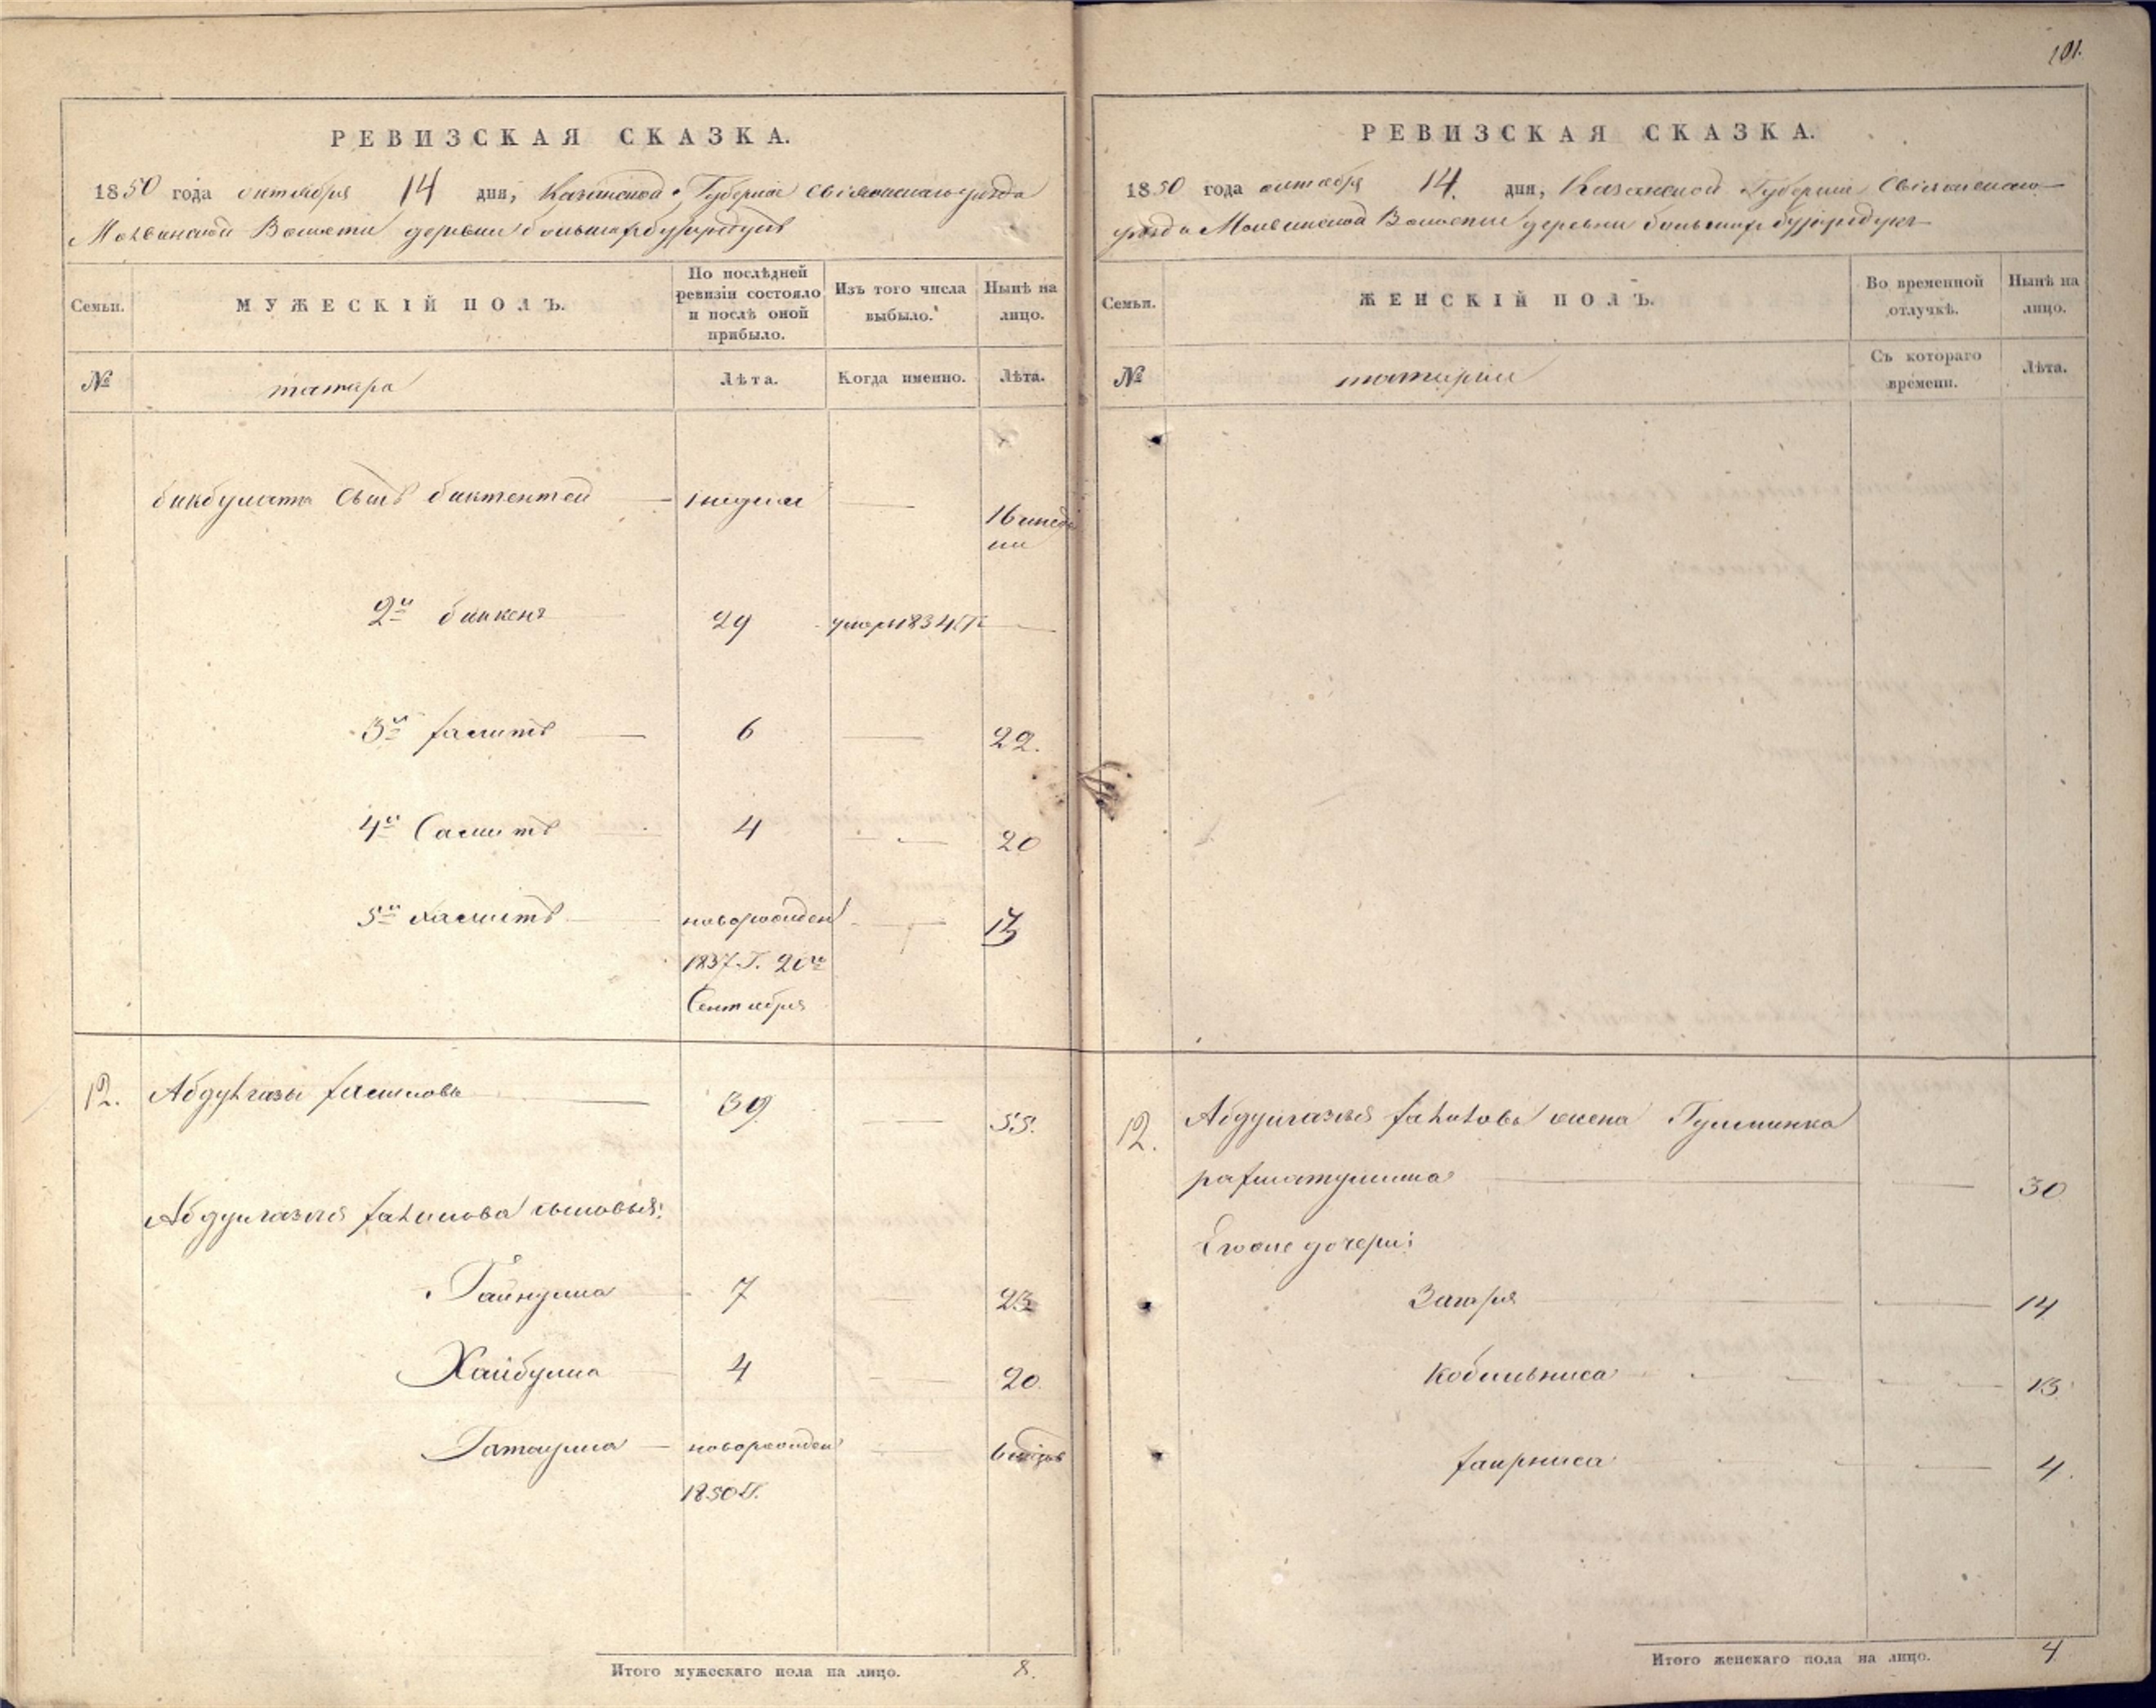 101.
РЕВИЗСКАЯ СКАЗКА.
1850 года октября 14 дня, Казанской Губернии Свіяжскаго уѣзда
Молвинской Волости деревни большихъ
Семьи.
МУЖЕСКІЙ ПОЛЪ.
По послѣдней ревизіи состояло и послѣ оной прибыло.
Изъ того числа выбыло.
Нынѣ на лицо.
№
татара
Лѣта.
Когда именно.
Лѣта.
бикбулата сынъ биктентей 1 недели — 16 и недѣ
ли
2й 29 умеръ 1834 Г.
3й 6 — 22.
4й Самитъ 4 — 20
5й хамитъ новорожден — 13
1837 Г. 20го
Сентября
12. Абдулгазы 39 — 55.
Абдулгазыя сыновья:
Гайнулла 7 — 23
Хайбулла 4 — 20.
Гатаулла — новорожден — 6 мѣсяц
1850 Г.
Итого мужескаго пола на лицо. 8.
РЕВИЗСКАЯ СКАЗКА.
1850 года октября 14. дня, Казанской Губерніи Свіяжскаго
уѣзда Молвинской Волости деревни большихъ
Семьи.
ЖЕНСКІЙ ПОЛЪ.
Во временной отлучкѣ.
Нынѣ на лицо.
№
татарки
Съ котораго времени.
Лѣта.
12.
Абдулгазыя жена
рахматуллина — 30
Его же дочери:
Загиря — 14
— 13
хаирниса — 4.
Итого женскаго пола на лицо. 4